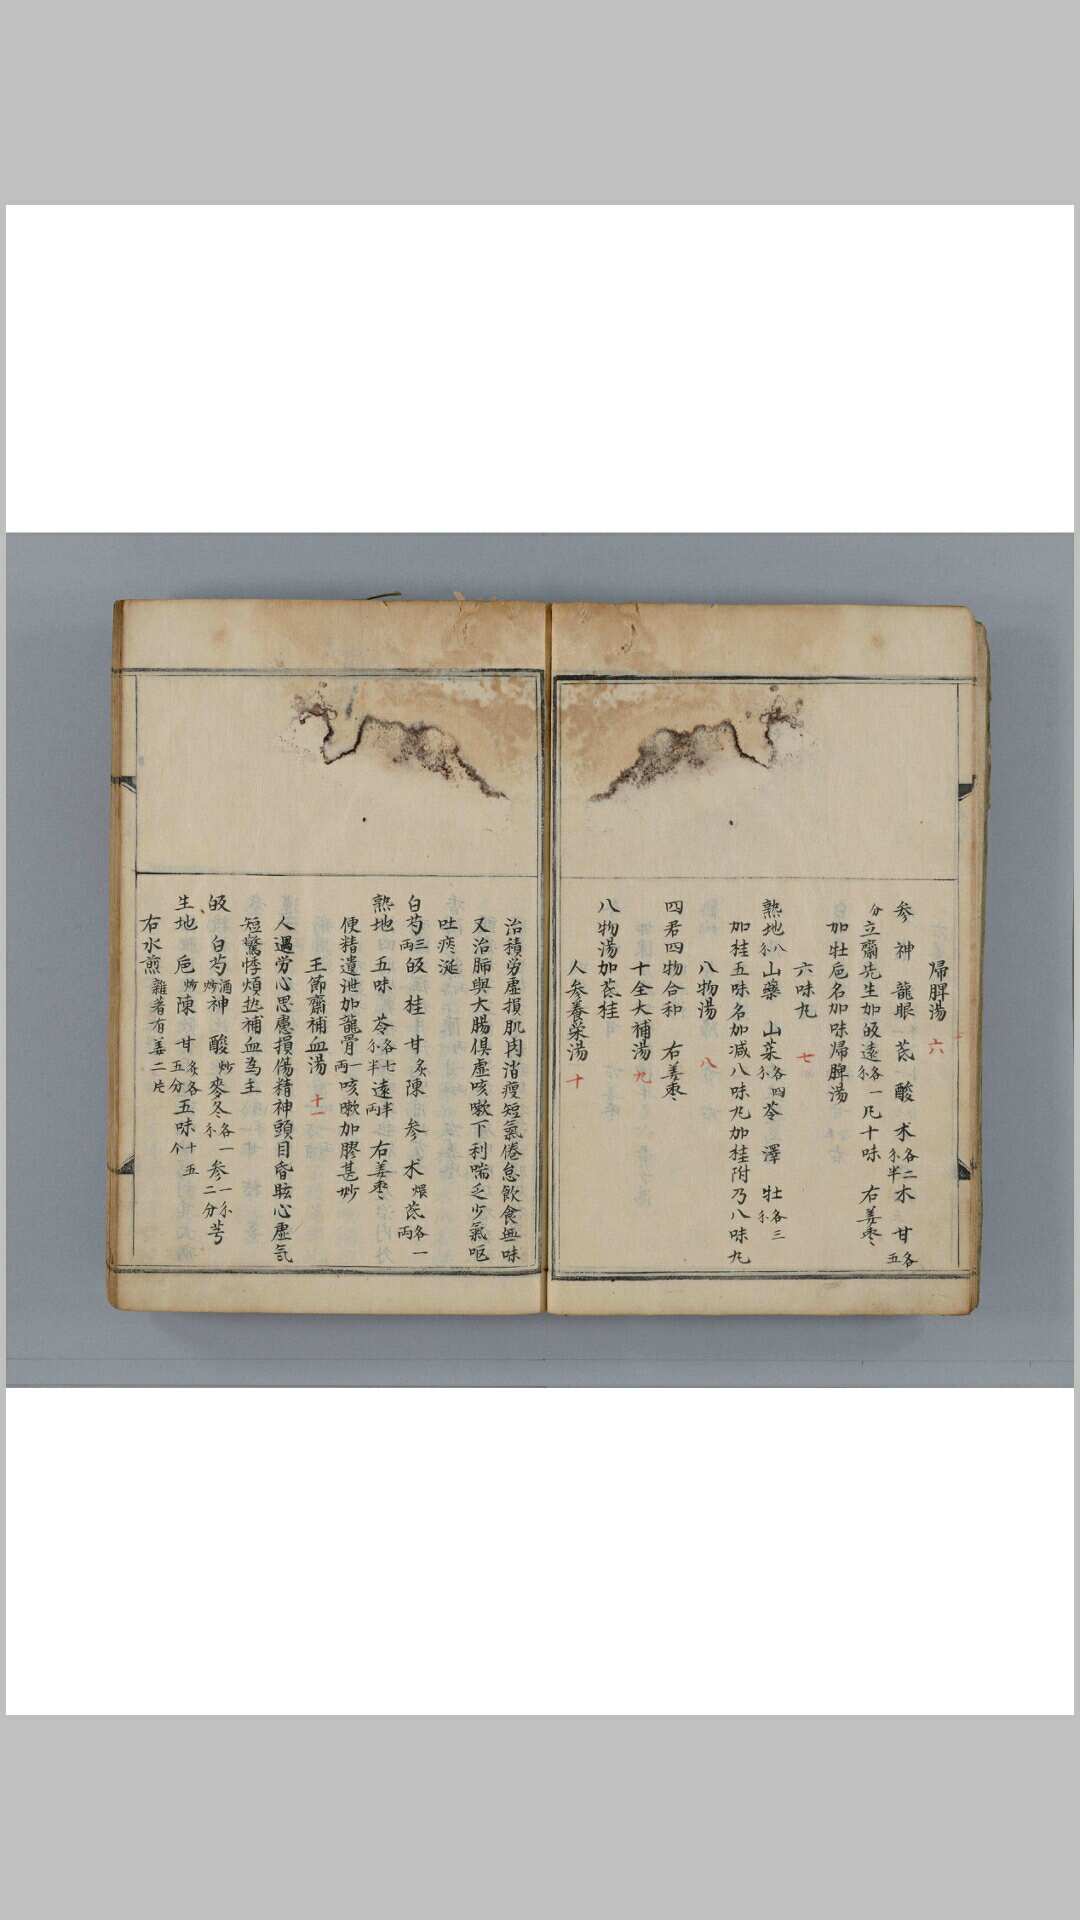 歸脾湯 六
参 神 龍眼 芪 酸 朮各二分半 木 甘各五
分 立齋先生加皈遠各一分 凡十味 右姜枣
加牡巵名加味歸脾湯
六味丸 七
熟地八分 山藥 山茱各四分 苓 澤 牡各三分
加桂五味名加减八味丸加桂附乃八味丸
八物湯 八
四君四物合和 右姜枣
十全大補湯 九
八物湯加芪桂
人参養栄湯 十
治積勞虚損肌肉消瘦短氣倦怠飲食無味
又治肺與大腸俱虚咳嗽下利喘乏少氣呕
吐痰涎
白芍三両 皈 桂 甘炙 陳 参 朮煨 芪各一両
熟地 五味 苓各七分半 遠半両 右姜枣
便精遺泄加龍骨一両 咳嗽加膠甚妙
王節齋補血湯 十一
人遇勞心思慮損傷精神頭目昏眩心虚氣
短驚悸煩热補血為主
皈 白芍酒炒 神 酸炒 麥冬各一分 参一分二分 芎
生地 巵炒 陳 甘炙各五分 五味十五个
右水煎 雜著有姜二片